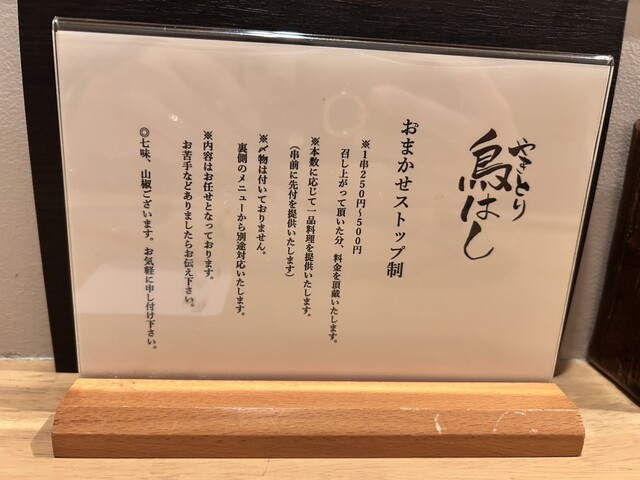 やきとり
鳥はし
おまかせストップ制
※1串250円〜500円
召し上がって頂いた分、料金を頂戴いたします。
※本数に応じて一品料理を提供いたします。
(串前に先付を提供いたします)
※〆物は付いておりません。
裏側のメニューから別途対応いたします。
※内容はお任せとなっております。
お苦手などありましたらお伝え下さい。
◎七味、山椒ございます。お気軽に申し付け下さい。